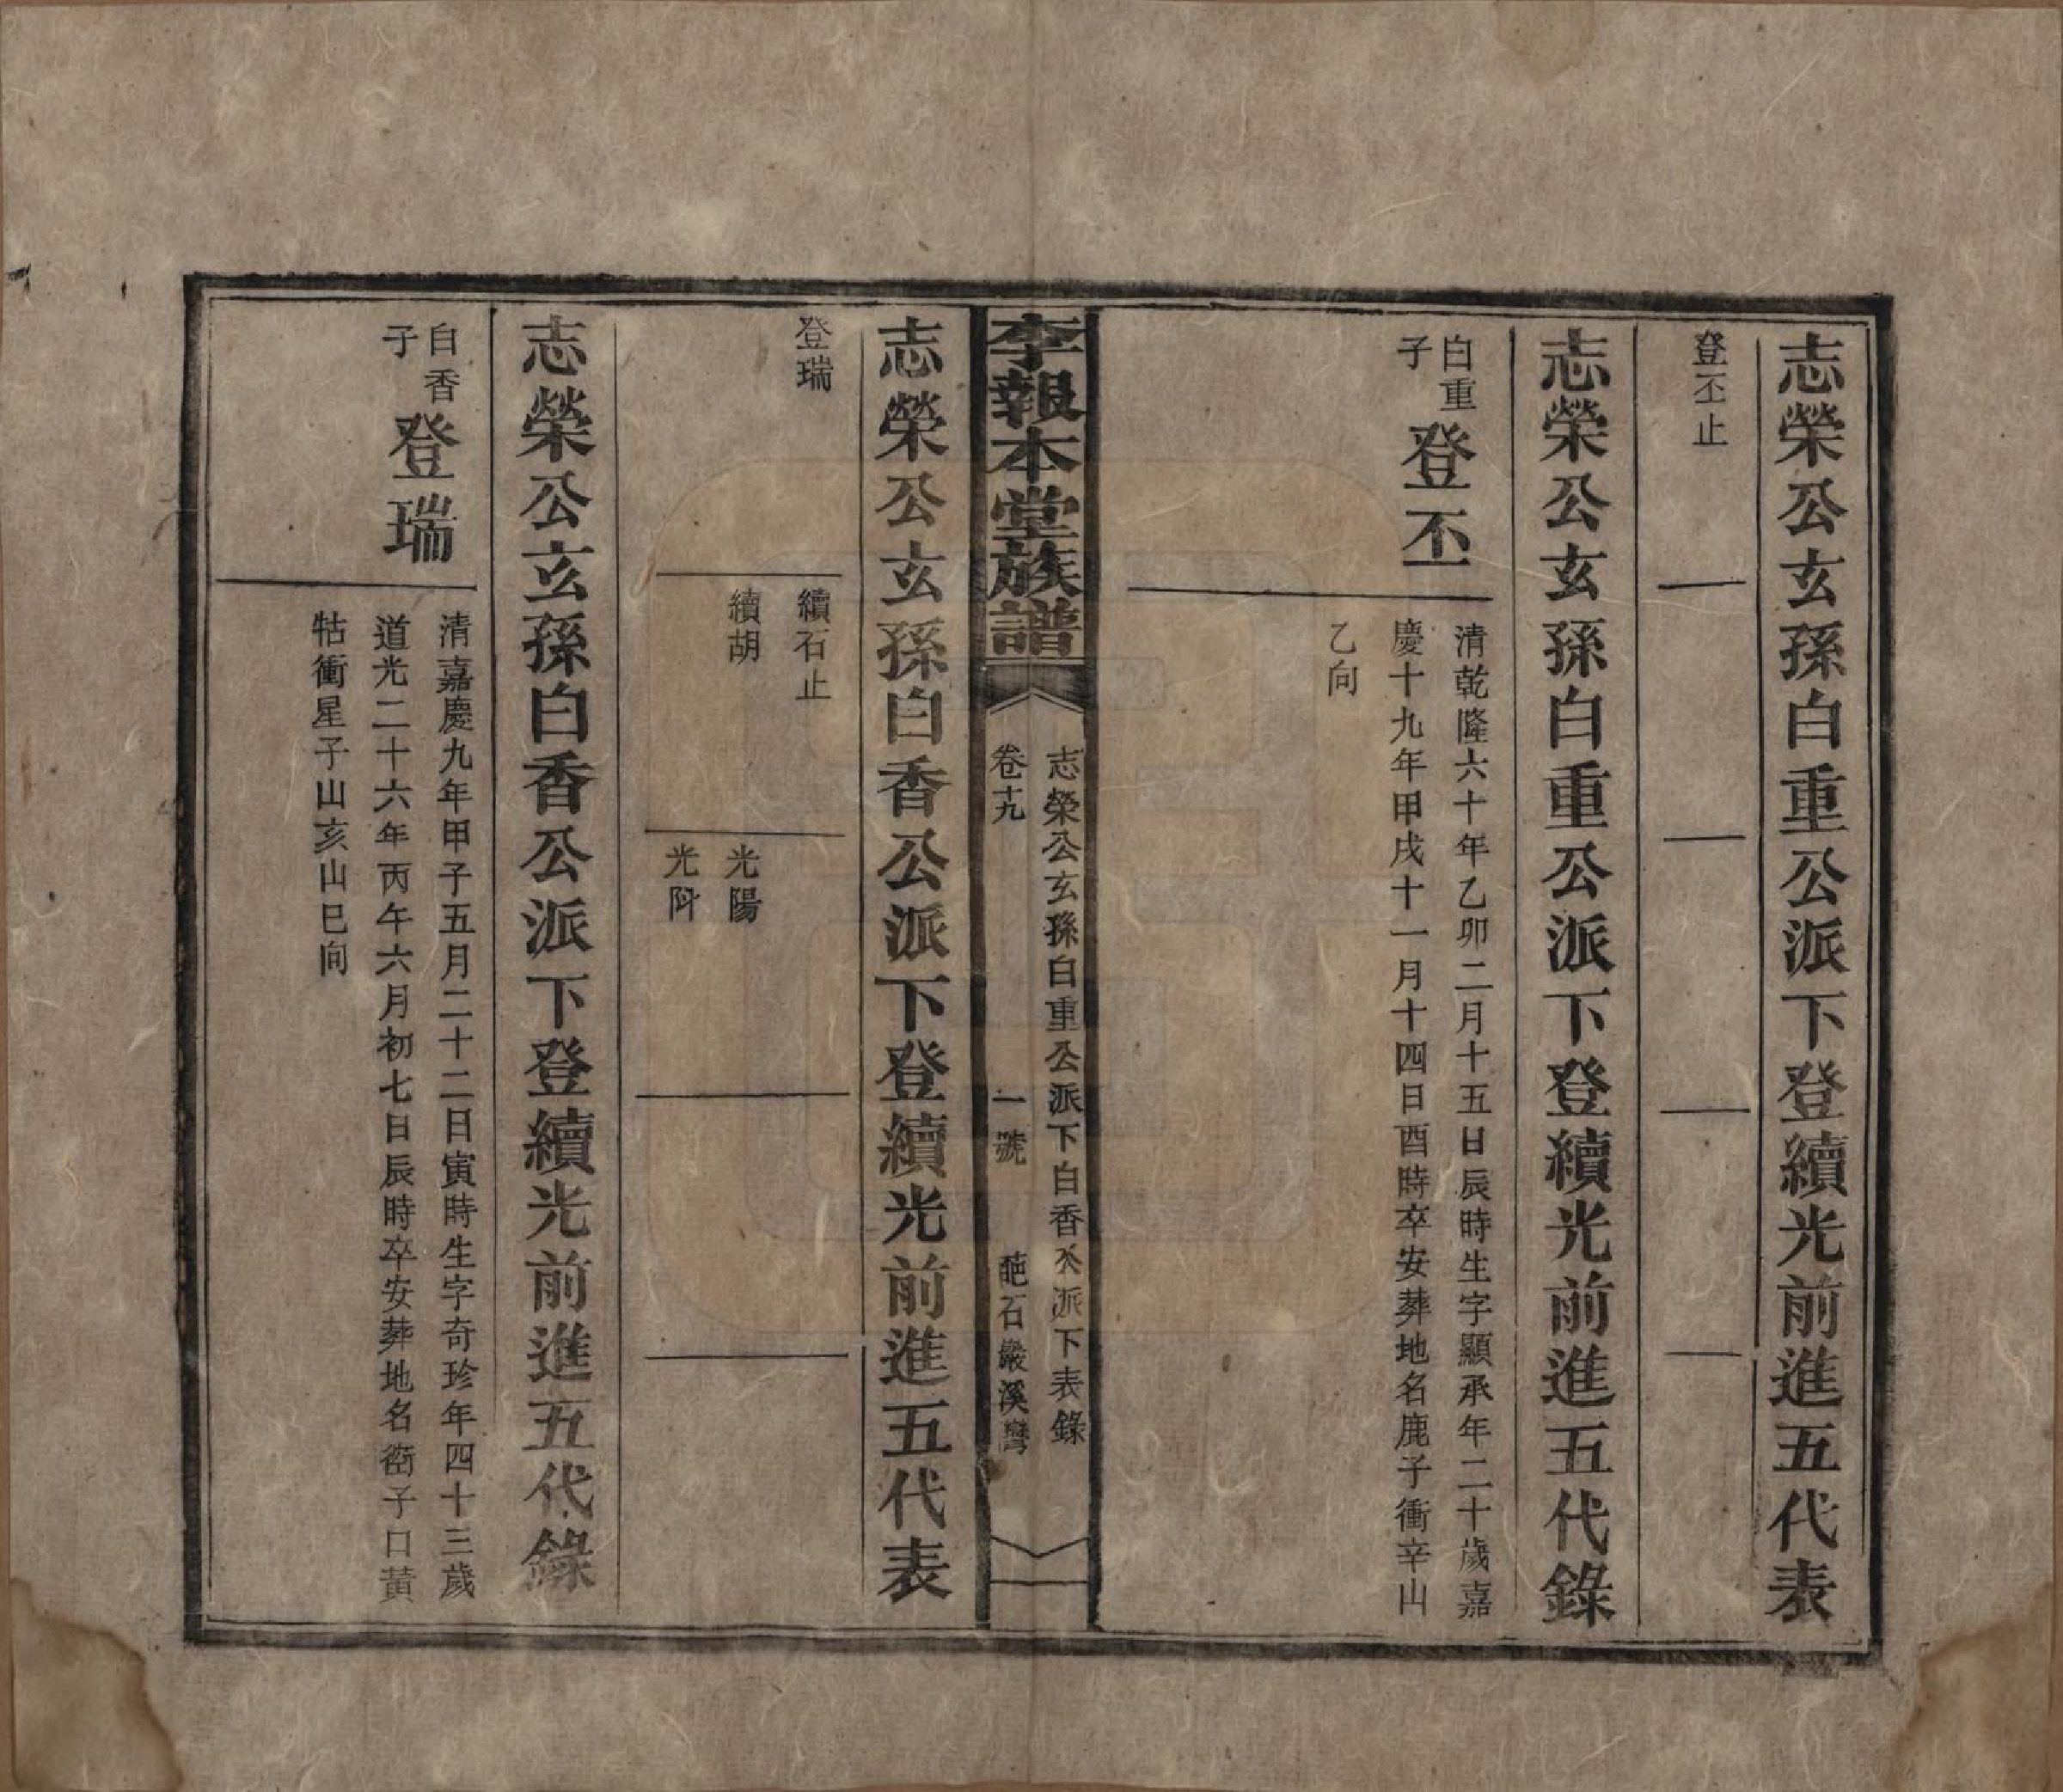 志榮公玄孫白重公派下登續光前進五代表
登丕止
志榮公玄孫白重公派下登續光前進五代錄
白重子
登丕
清乾隆六十年乙卯二月十五日辰時生字顯承年二十歲嘉
慶十九年甲戌十一月十四日酉時卒安葬地名鹿子衝辛山
乙向
李報本堂族譜
志榮公玄孫白重公派下白香公派下表錄
卷十九
一號
石巖溪灣
志榮公玄孫白香公派下登續光前進五代表
登瑞
續石止
續胡
光陽
光阩
志榮公玄孫白香公派下登續光前進五代錄
白香子
登瑞
清嘉慶九年甲子五月二十二日寅時生字奇珍年四十三歲
道光二十六年丙午六月初七日辰時卒安葬地名嵒子口黃
牯衝星子山亥山巳向